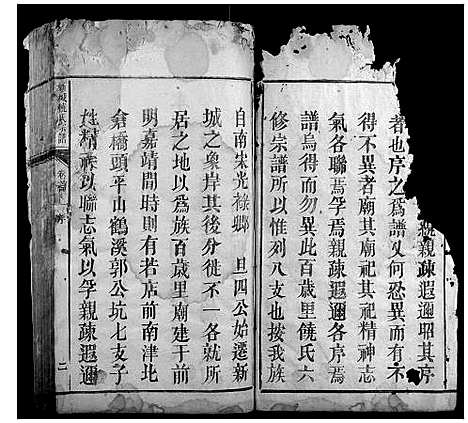 親疎遐邇昭其序
者也序之為譜又何恐異而有不
得不異者廟其廟祀其祀精神志
氣各聯焉孚焉親疎遐邇各序焉
譜烏得而勿異此百歲里饒氏六
修宗譜所以惟列八支也按我族
自南宋光祿卿 旦四公始遷新
城之象岸其後分徙不一各就所
居之地以為族百歲里廟建于前
明嘉靖間時則有若店前南津北
倉橋頭平山鶴溪郭公坑七支子
姓精神以聯志氣以孚親疎遐邇
饒氏宗譜 卷首 序 二